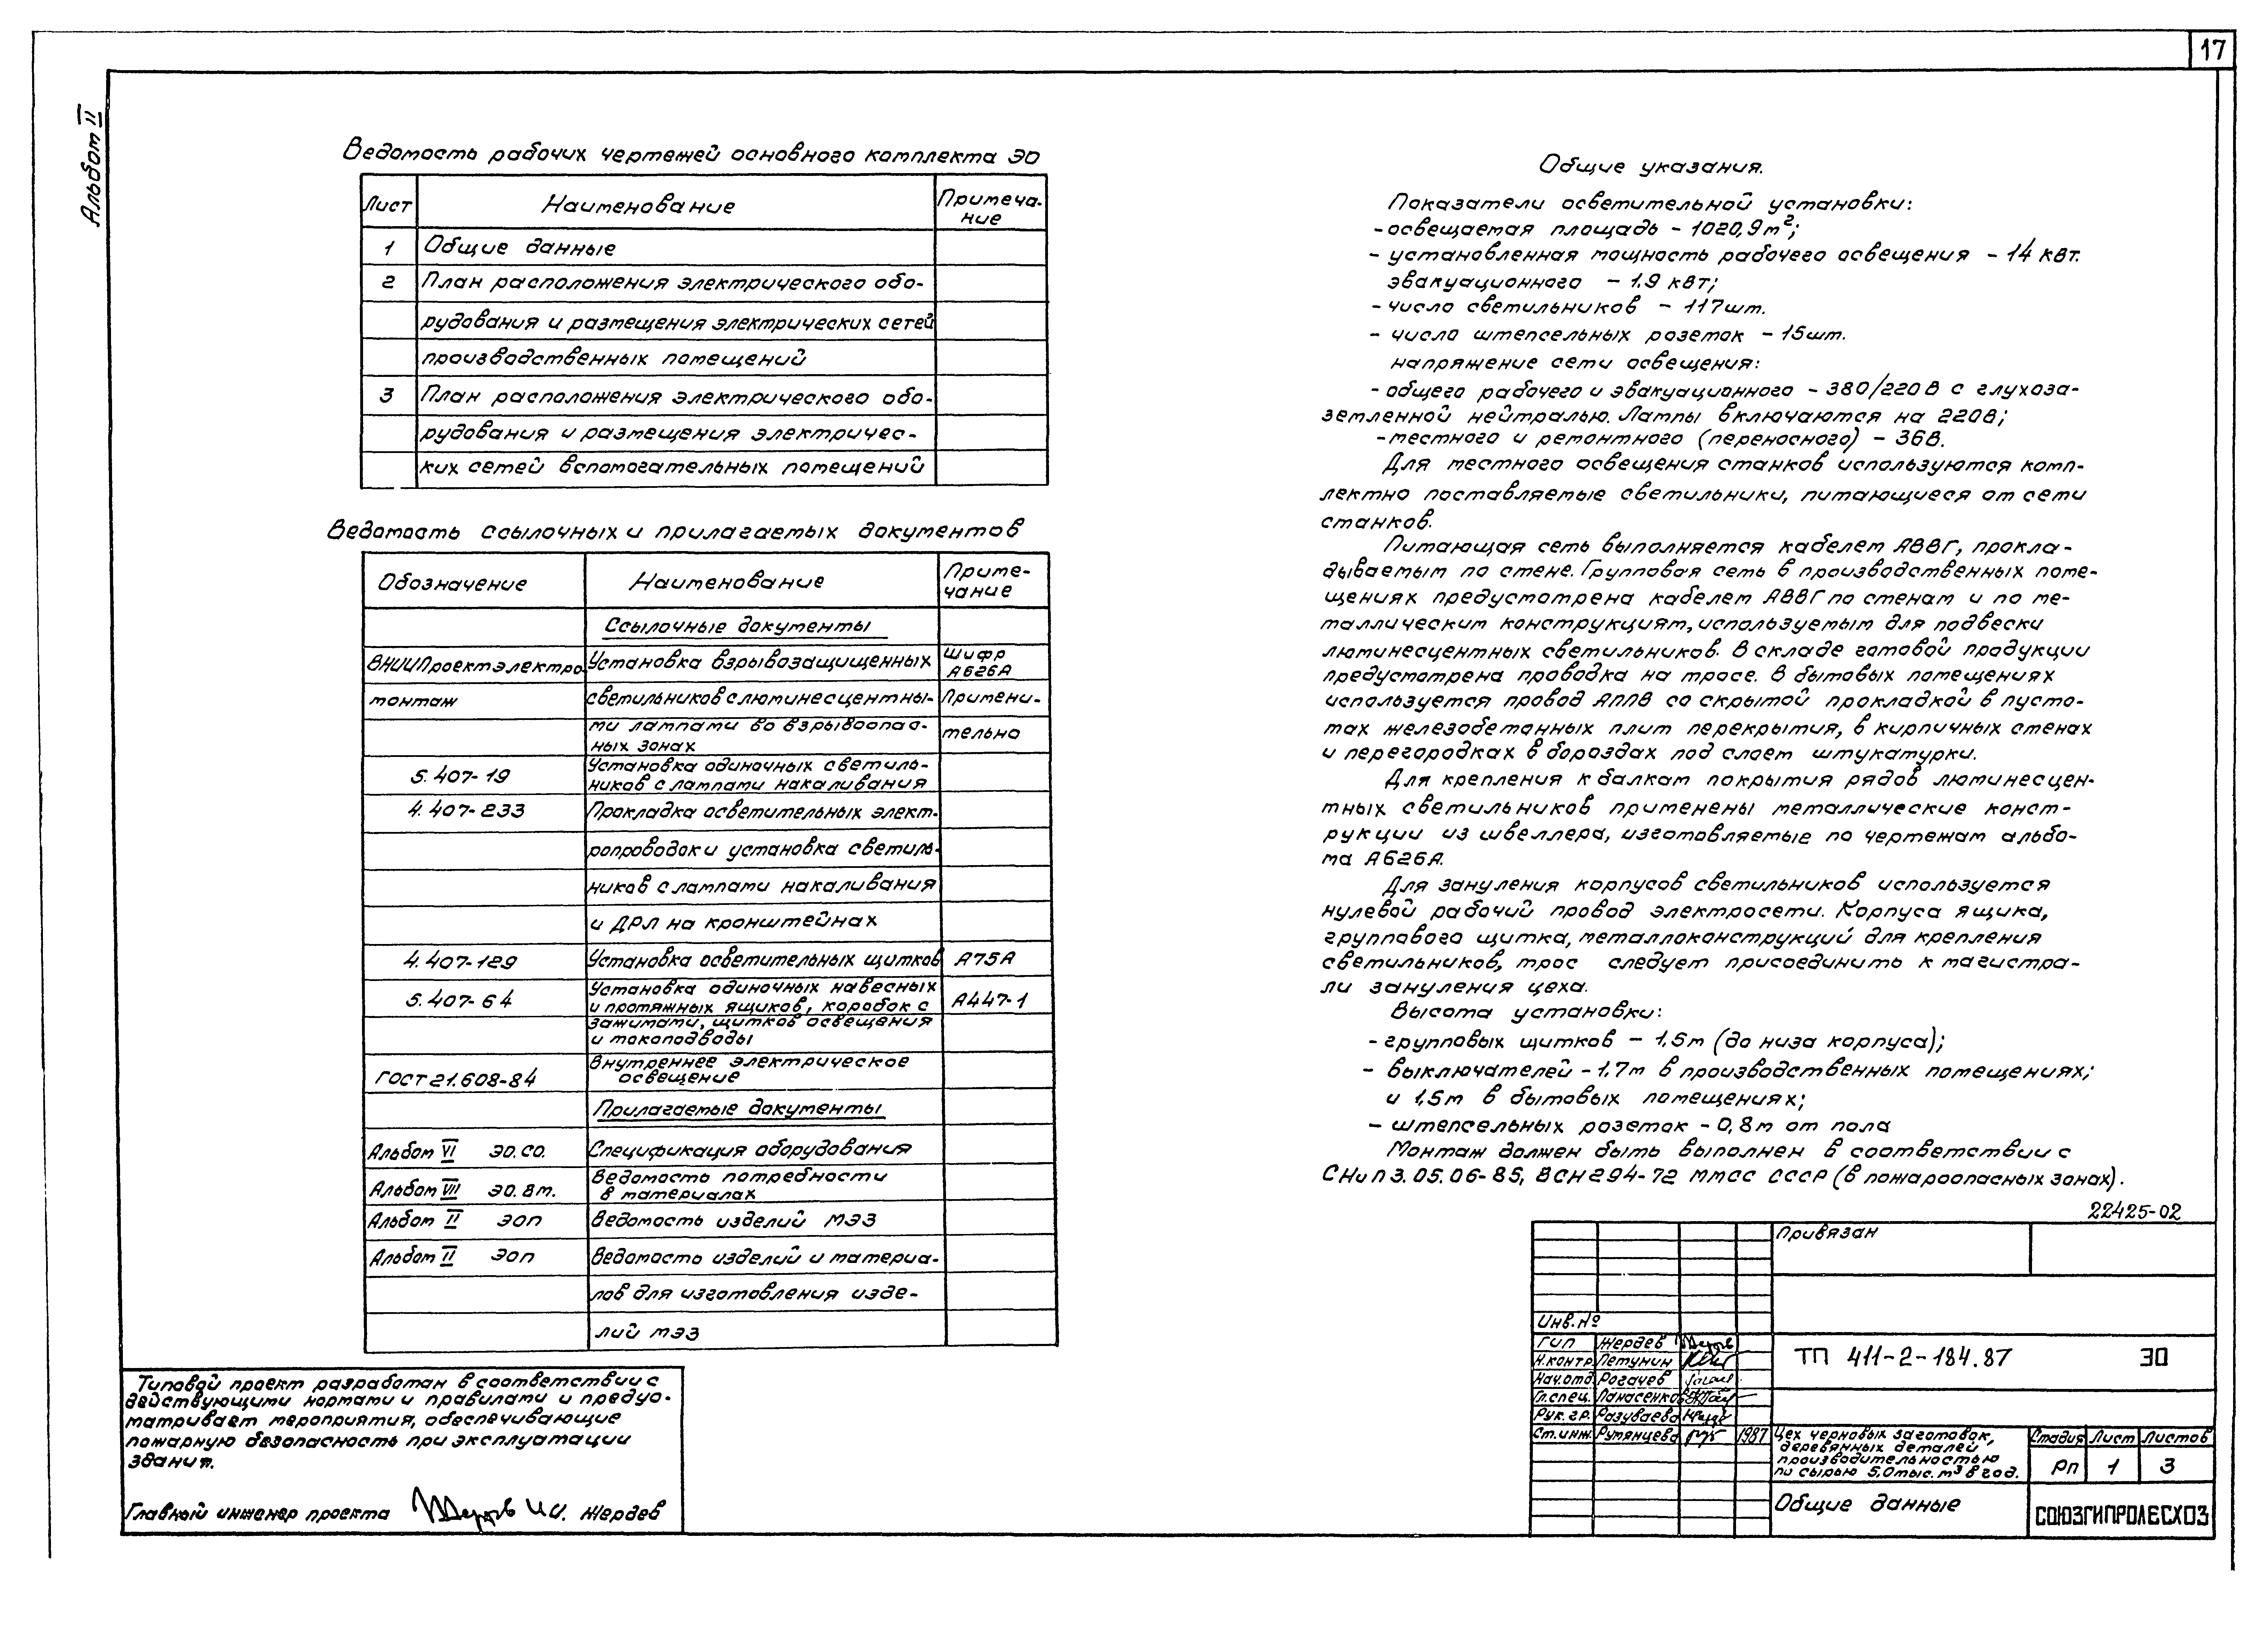 17
Альбом II
Ведомость рабочих чертежей основного комплекта ЭО
Лист Наименование Примеча-
ние
1 Общие данные
2 План расположения электрического обо-
рудования и размещения электрических сетей
производственных помещений
3 План расположения электрического обо-
рудования и размещения электричес-
ких сетей вспомогательных помещений
Ведомость ссылочных и прилагаемых документов
Обозначение Наименование Приме-
чание
Ссылочные документы
ВНИИПроектэлектро Установка взрывозащищенных Шифр А626А
монтаж светильников с люминесцентны- Примени-
ми лампами во взрывоопас- тельно
ных зонах
5.407-19 Установка одиночных светиль-
ников с лампами накаливания
4.407-233 Прокладка осветительных элект-
ропроводок и установка светиль-
ников с лампами накаливания
и ДРЛ на кронштейнах
4.407-129 Установка осветительных щитков А75А
5.407-64 Установка одиночных навесных А447-1
и протяжных ящиков, коробок с
зажимами, щитков освещения
и токоподводы
ГОСТ 21.608-84 Внутреннее электрическое
освещение
Прилагаемые документы
Альбом VI ЭО.СО. Спецификация оборудования
Альбом VII ЭО.ВМ. Ведомость потребности
в материалах
Альбом II ЭОП Ведомость изделий МЭЗ
Альбом II ЭОП Ведомость изделий и материа-
лов для изготовления изде-
лий МЭЗ
Типовой проект разработан в соответствии с
действующими нормами и правилами и предус-
матривает мероприятия, обеспечивающие
пожарную безопасность при эксплуатации
здания.
Главный инженер проекта И.И. Жердев
Общие указания.
Показатели осветительной установки:
- освещаемая площадь - 1020,9 м²;
- установленная мощность рабочего освещения - 14 кВт.
эвакуационного - 1,9 кВт;
- число светильников - 117шт.
- число штепсельных розеток - 15шт.
напряжение сети освещения:
- общего рабочего и эвакуационного - 380/220В с глухоза-
земленной нейтралью. Лампы включаются на 220В;
- местного и ремонтного (переносного) - 36В.
Для местного освещения станков используются комп-
лектно поставляемые светильники, питающиеся от сети
станков.
Питающая сеть выполняется кабелем АВВГ, прокла-
дываемым по стене. Групповая сеть в производственных поме-
щениях предусмотрена кабелем АВВГ по стенам и по ме-
таллическим конструкциям, используемым для подвески
люминесцентных светильников. В складе готовой продукции
предусмотрена проводка на тросе. В бытовых помещениях
используется провод АППВ со скрытой прокладкой в пусто-
тах железобетонных плит перекрытия, в кирпичных стенах
и перегородках в бороздах под слоем штукатурки.
Для крепления к балкам покрытия рядов люминесцен-
тных светильников применены металлические конст-
рукции из швеллера, изготовляемые по чертежам альбо-
ма А626А.
Для зануления корпусов светильников используется
нулевой рабочий провод электросети. Корпуса ящика,
группового щитка, металлоконструкций для крепления
светильников, трос следует присоединить к магистра-
ли зануления цеха.
Высота установки:
- групповых щитков - 1,5м (до низа корпуса);
- выключателей - 1,7м в производственных помещениях;
и 1,5м в бытовых помещениях;
- штепсельных розеток - 0,8м от пола
Монтаж должен быть выполнен в соответствии с
СНиП 3.05.06-85, ВСН 294-72 ММСС СССР (в пожароопасных зонах).
22425-02
Привязан
Инв.№
ГИП Жердев
Н.контр Петунин
Нач.отд Рогачев
Гл.спец. Панасенков
Рук.гр. Разуваева
Ст.инж. Румянцева 1987
ТП 411-2-184.87 ЭО
Цех черновых заготовок,
деревянных деталей
производительностью
по сырью 5,0тыс.м³ в год.
Стадия Лист Листов
РП 1 3
Общие данные
СОЮЗГИПРОЛЕСХОЗ